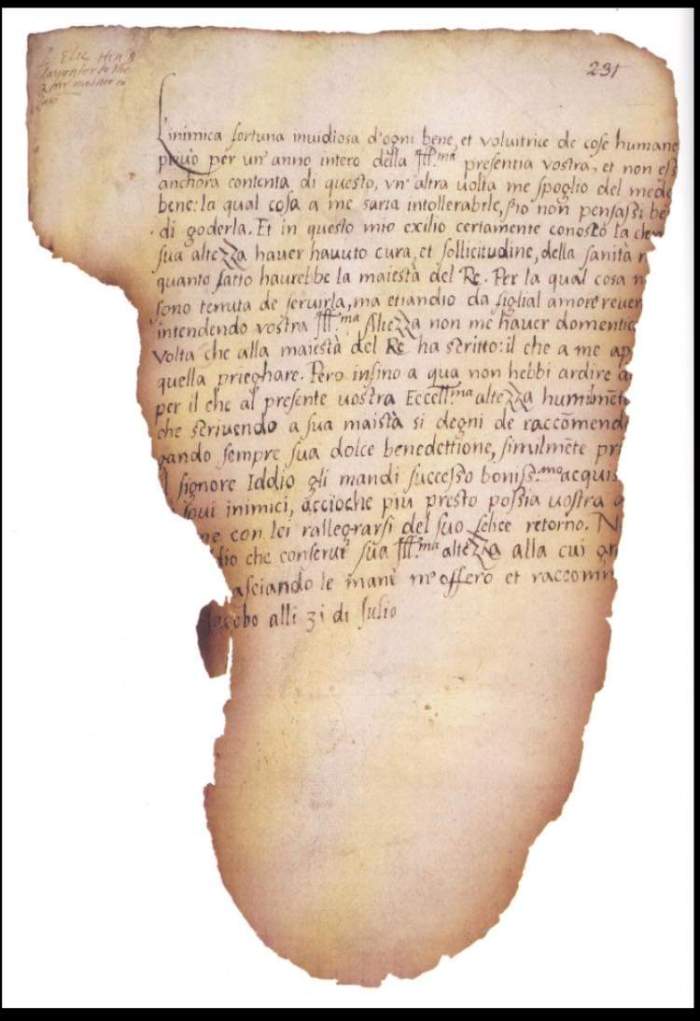 231
L'inimica fortuna inuidiosa d'ogni bene, et voluitrice de cose humane
priuò per un' anno intero della Ill.ma presentia vostra, et non
anchora contenta di questo, vn' altra uolta me spoglio del
bene: la qual cosa a me saria intollerabile, s'io non pensassi
di goderla. Et in questo mio exilio certamente conosco la
sua altezza hauer hauuto cura, et sollicitudine, della sanità
quanto fatto haurebbe la maiestà del Re. Per la qual cosa
sono tenuta de seruirla, ma etiandio da figlial amore
intendendo vostra Ill.ma Altezza non me hauer
volta che alla maiestà del Re ha scritto: il che a me
quella prieghare. Pero insino a qua non hebbi ardire
per il che al presente uostra Eccell.ma altezza
che scriuendo a sua maistà si degni de
sempre sua dolce benedettione, similmēte
signore Iddio gli mandi successo boniss.mo
suoi inimici, accioche piu presto possia uostra
con lei rallegrarsi del suo felice retorno.
che conserui sua Ill.ma altezza alla cui
le mani m'offero et
alli 31 di Julio